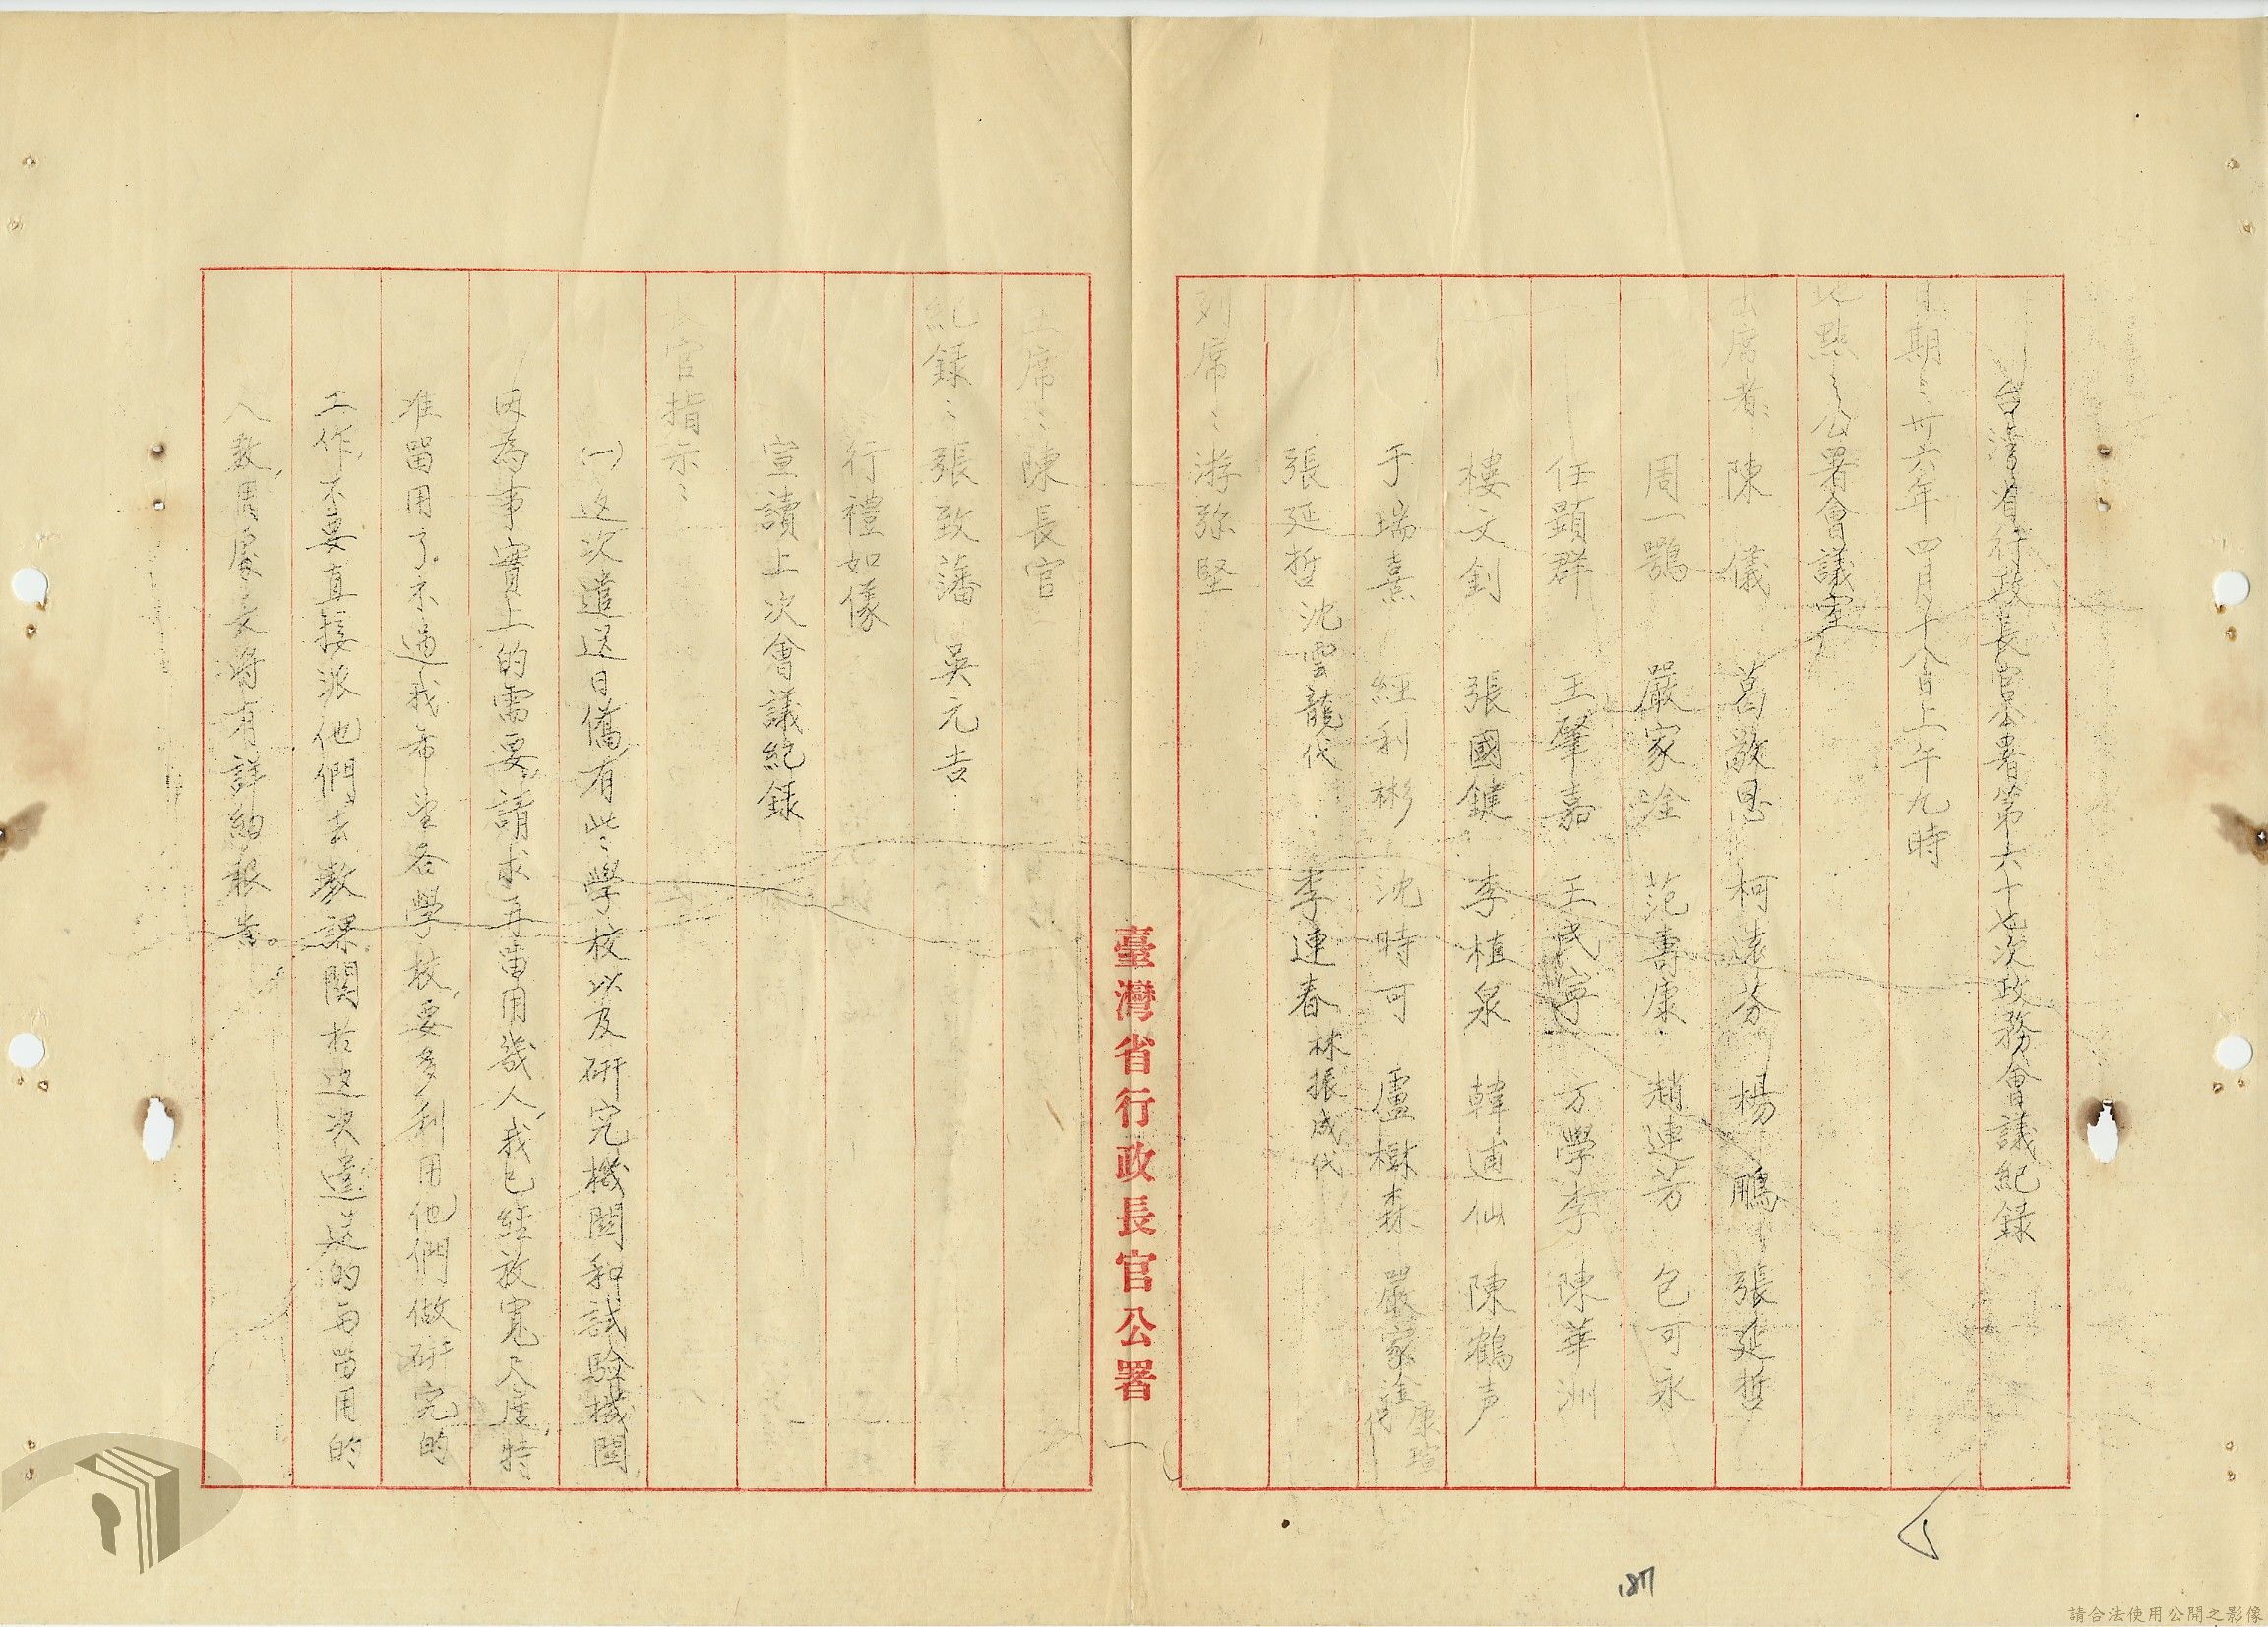 台灣省行政長官公署第六十七次政務會議紀錄
日期：卅六年四月十八日上午九時
地點：公署會議室
出席者：陳儀　葛敬恩　柯遠芬　楊鵬　張延哲
周一鶚　嚴家淦　范壽康　趙連芳　包可永
任顯群　王肇嘉　王民寧　方學李　陳華洲
樓文釗　張國鍵　李植泉　韓逋仙　陳鶴声
于瑞熹　經利彬　沈時可　盧樹森　嚴家淦 康瑄代
張延哲 沈雲龍代　李連春 林振成代
列席：游弥堅
臺灣省行政長官公署
一
主席：陳長官
紀錄：張致藩　吳元吉
行禮如儀
宣讀上次會議紀錄
長官指示：
(一)這次遣送日僑，有些學校以及研究機関和試驗機関
因為事實上的需要，請求再留用幾人，我已經放寬尺度，特
准留用了，不過我希望各學校，要多利用他們做研究的
工作，不要直接派他們去教課，関於这次遣送的與留用的
人数，周處長將有詳細報告。
187
請合法使用公開之影像